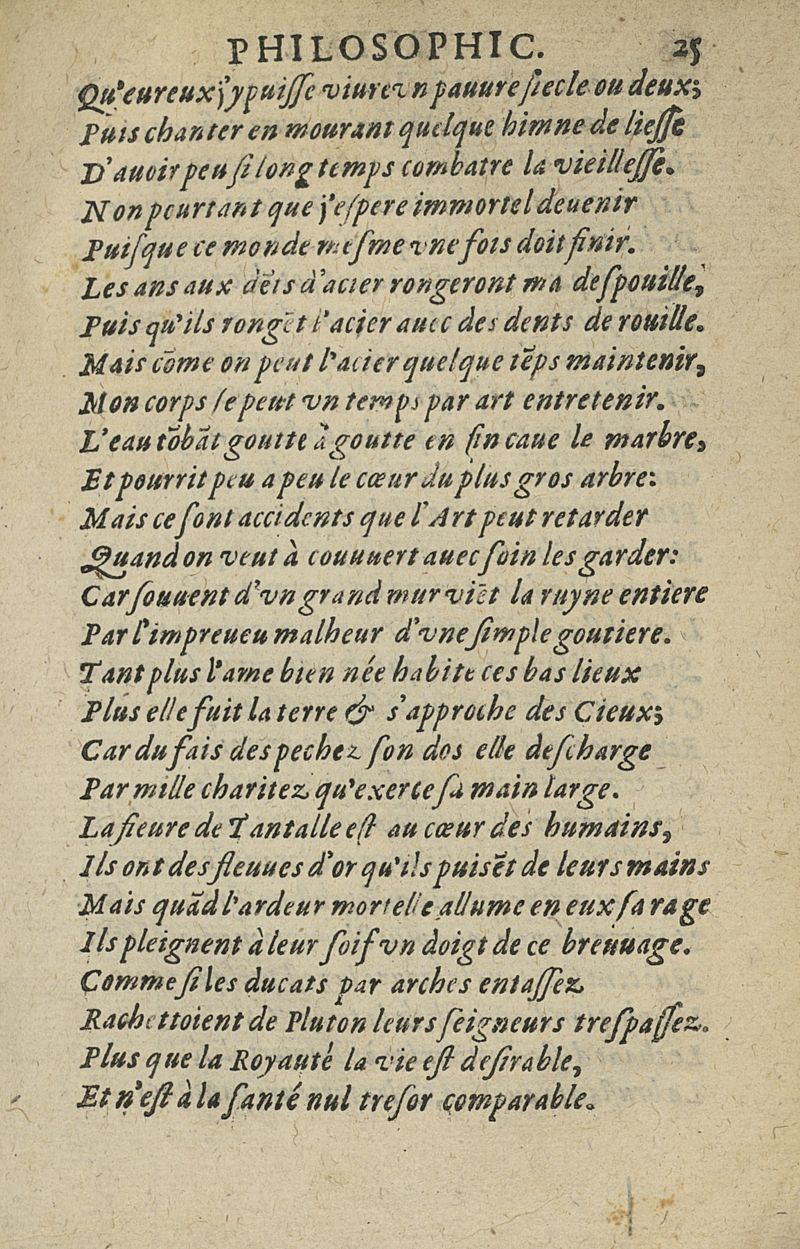 PHILOSOPHIC. 25
Qu'eureux j'y puiſſe viure vn pauure ſiecle ou deux;
Puis chanter en mourant quelque himne de lieſſe
D'auoir peu ſi long temps combatre la vieilleſſe.
Non pourtant que j'eſpere immortel deuenir
Puiſque ce monde meſme vne fois doit finir.
Les ans aux dẽts d'acier rongeront ma deſpouille,
Puis qu'ils rongẽt l'acier auec des dents de rouille.
Mais cõme on peut l'acier quelque tẽps maintenir,
Mon corps ſe peut vn temps par art entretenir.
L'eau tõbãt goutte à goutte en fin caue le marbre,
Et pourrit peu a peu le cœur du plus gros arbre:
Mais ce ſont accidents que l'Art peut retarder
Quand on veut à couuuert auec ſoin les garder:
Car ſouuent d'vn grand mur viẽt la ruyne entiere
Par l'impreueu malheur d'vne ſimple goutiere.
Tant plus l'ame bien née habite ces bas lieux
Plus elle fuit la terre & s'approche des Cieux;
Car du fais des pechez ſon dos elle deſcharge
Par mille charitez qu'exerce ſa main large.
La fieure de Tantalle eſt au cœur des humains,
Ils ont des fleuues d'or qu'ils puisẽt de leurs mains
Mais quãd l'ardeur mortelle allume en eux ſa rage
Ils pleignent à leur ſoif vn doigt de ce breuuage.
Comme ſi les ducats par arches entaſſez
Rachettoient de Pluton leurs ſeigneurs treſpaſſez.
Plus que la Royauté la vie eſt deſirable,
Et n'eſt à la ſanté nul treſor comparable.